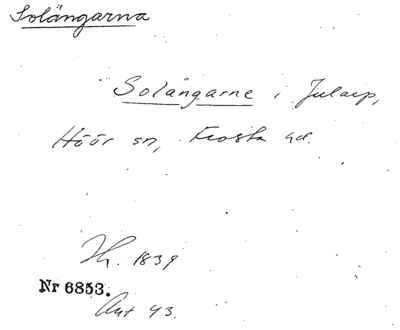 Solängarna
Solängarne i Jularp,
Höör sn, Frosta hd.
Hr. 1839
Nr 6853.
Akt 43.